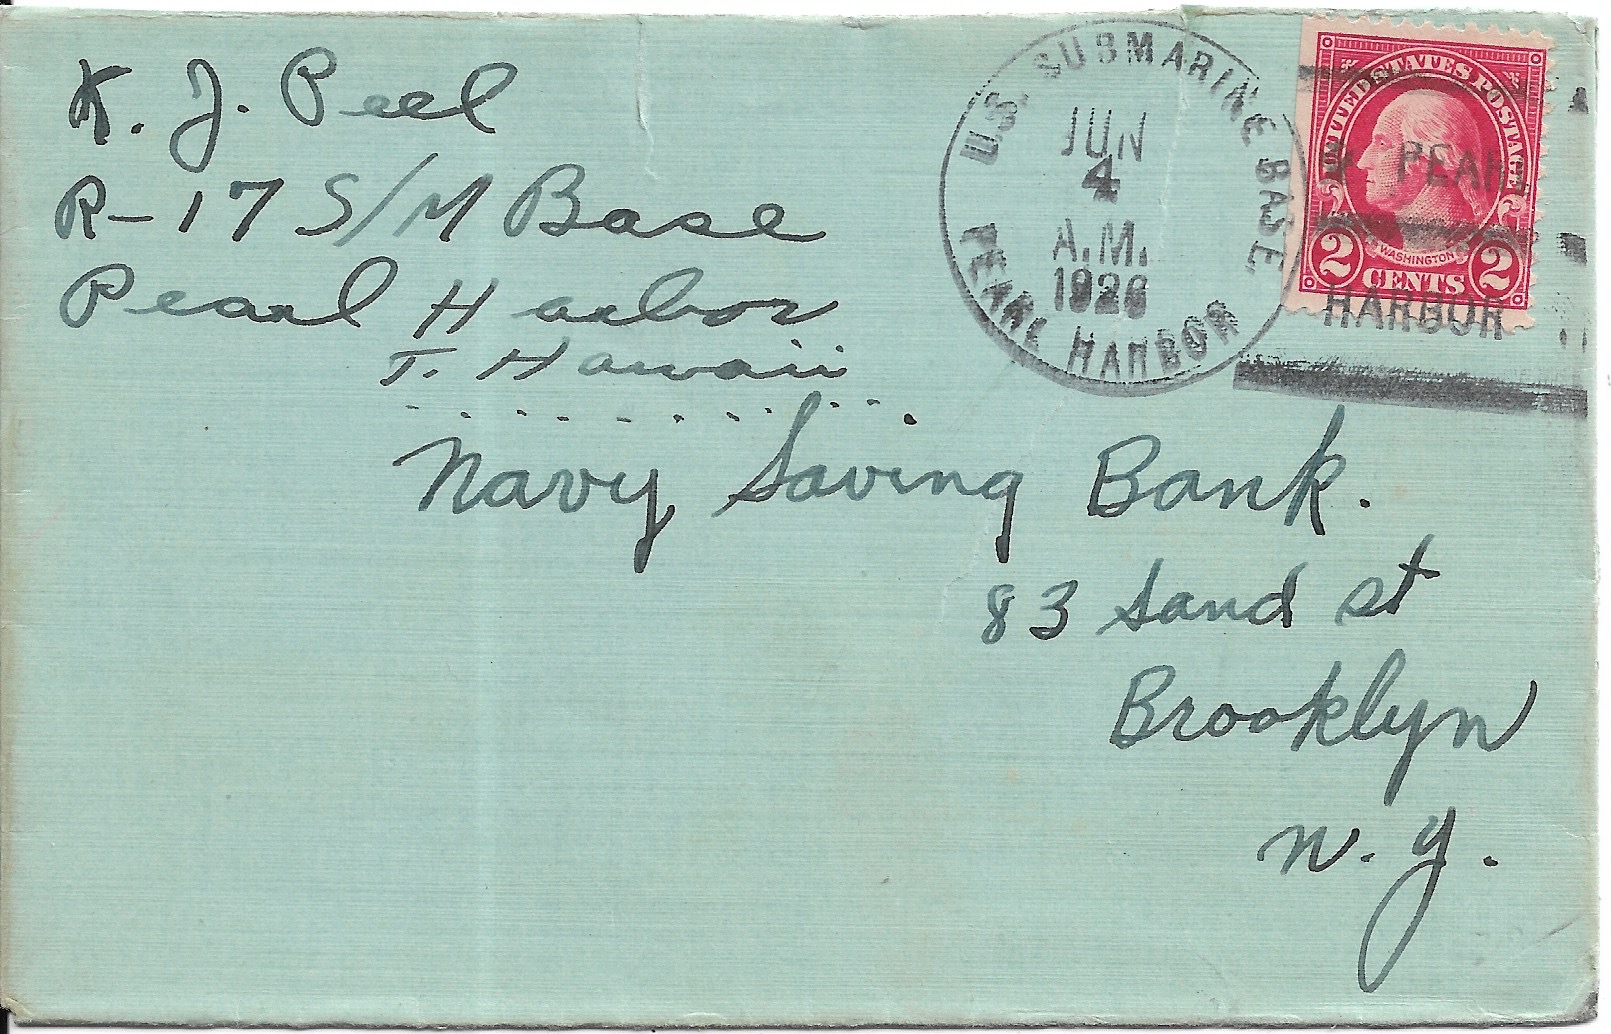 K. J. Peel
R-17 S/M Base
Pearl Harbor
T. Hawaii
U.S. SUBMARINE BASE
JUN
4
A.M.
1926
PEARL HARBOR
UNITED STATES POSTAGE
WASHINGTON
2 CENTS 2
PEARL
HARBOR
Navy Saving Bank.
83 Sand st
Brooklyn
N. Y.